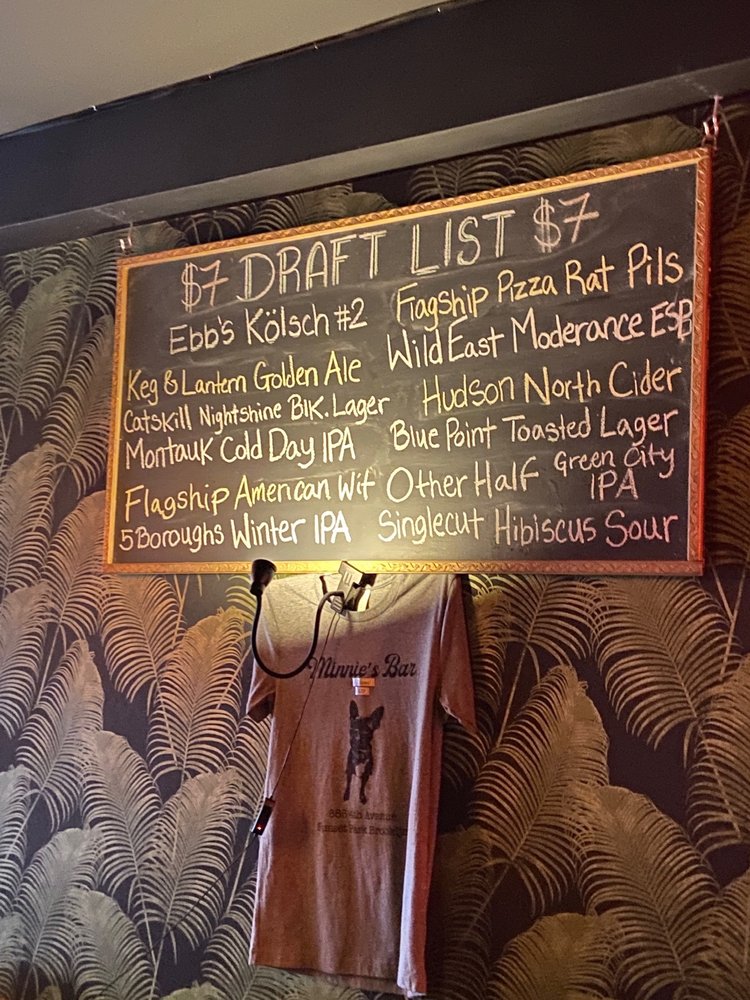 $7 DRAFT LIST $7
Ebb's Kölsch #2
Keg & Lantern Golden Ale
Catskill Nightshine Blk. Lager
Montauk Cold Day IPA
Flagship American Wit
5 Boroughs Winter IPA
Flagship Pizza Rat Pils
Wild East Moderance ESB
Hudson North Cider
Blue Point Toasted Lager
Other Half Green City IPA
Singlecut Hibiscus Sour
Minnie's Bar
885 4th Avenue
Sunset Park Brooklyn